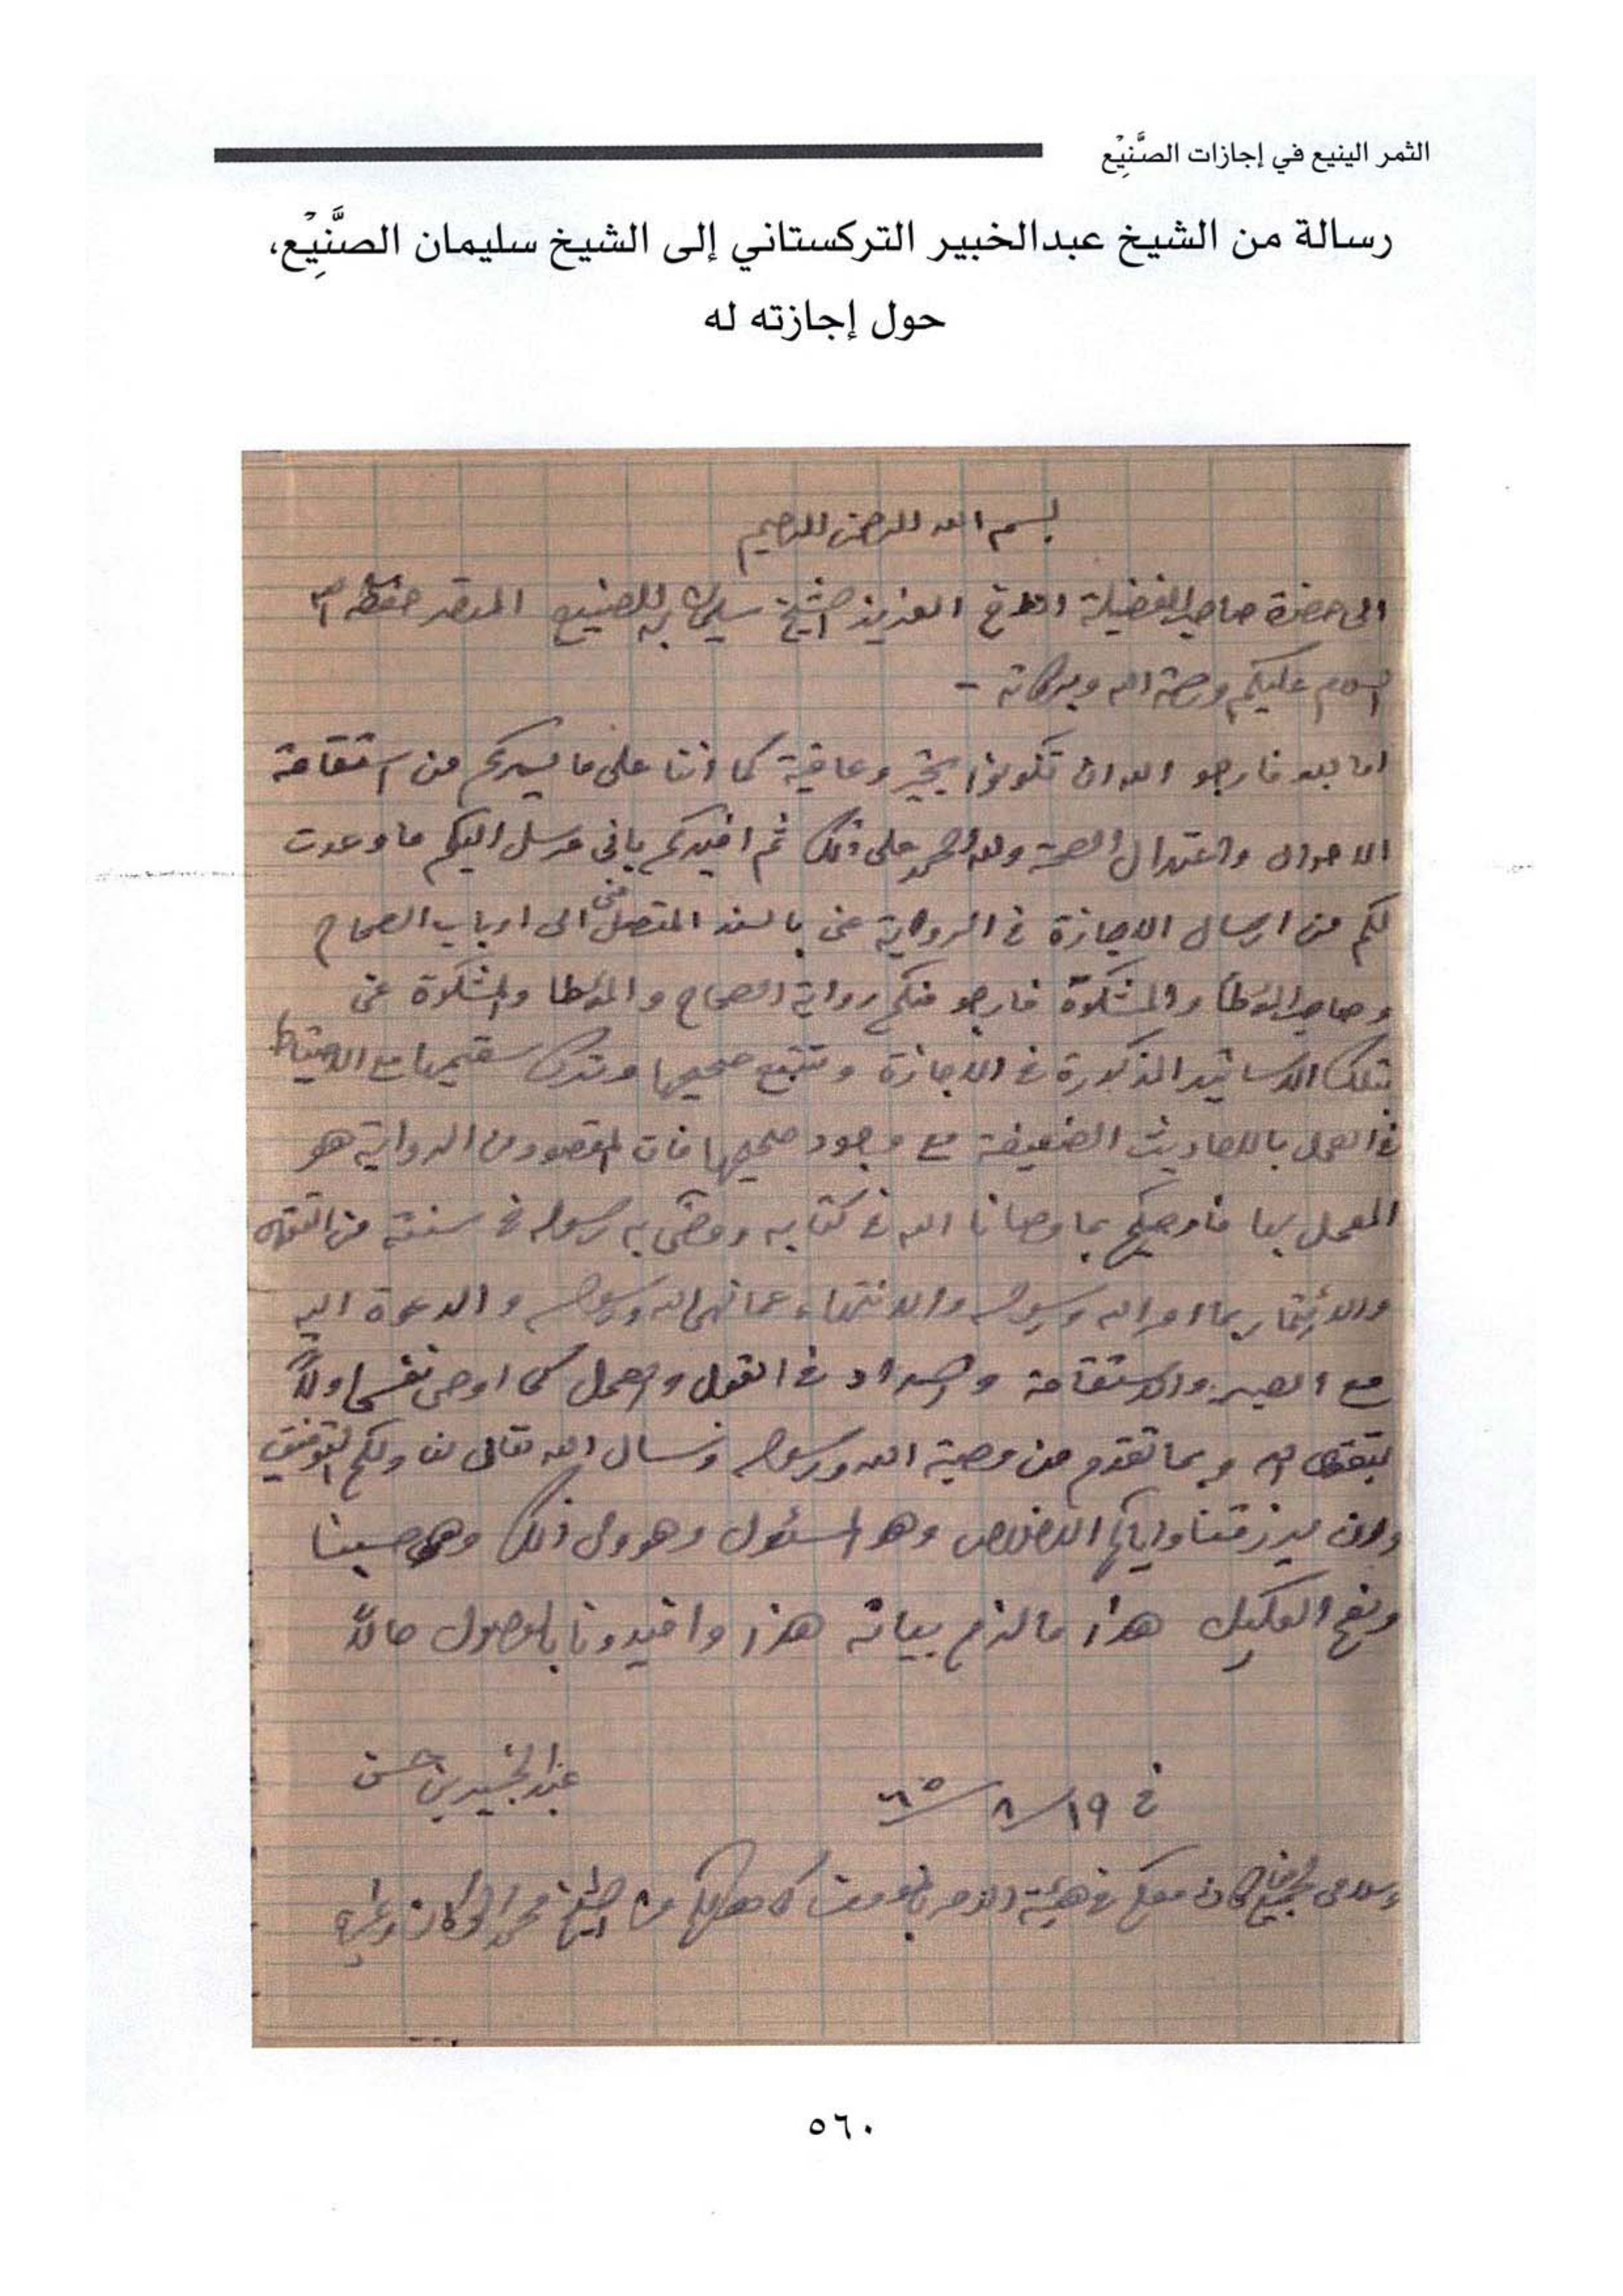 الثمر الينيع في إجازات الصَّنِيْع
رسالة من الشيخ عبدالخبير التركستاني إلى الشيخ سليمان الصَّنِيْع،
حول إجازته له
بسم الله الرحمن الرحيم
الى حضرة صاحب الفضيلة الاخ العزيز الشيخ سليمان الصنيع الموقر حفظه الله
السلام عليكم ورحمة الله وبركاته -
اما بعد فارجو الله ان تكونوا بخير وعافية كما اننا على ما يسركم من استقامة
الاحوال واعتدال الصحة ولله الحمد على ذلك ثم افيدكم باني مرسل اليكم ما وعدت
لكم من ارسال الاجازة في الرواية عني بالسند المتصل مني الى ارباب الصحاح
وصاحب الموطأ والمشكوة فارجو منكم رواية الصحاح والموطا والمشكوة عني
بتلك الاسانيد المذكورة في الاجازة وتتبع صحيحها وترك سقيمها مع الاحتياط
في العمل بالاحاديث الضعيفة مع وجود صحيحها فان المقصود من الرواية هو
العمل بها فاوصيكم بما وصانا الله في كتابه ووصى به رسوله في سنته من التقوى
والائتمار بما امر الله ورسوله والانتهاء عما نهى الله ورسوله والدعوة اليه
مع الصبر والاستقامة والسداد في القول والعمل كما اوصي نفسي اولاً
بتقوى الله وبما تقدم من وصية الله ورسوله ونسال الله تعالى لنا ولكم التوفيق
وان يرزقنا واياكم الاخلاص وهو المسئول وهو ولى ذلك وهو حسبنا
ونعم الوكيل هذا ما لزم بيانه هذا وافيدونا بالوصول حالاً
عبد الخبير بن حسن
في ١٩/٨/٦٥
وسلامى لجميع الاخوان معكم في هيئة الامر بالمعروف كما يهديكم الشيخ محمد
٥٦٠